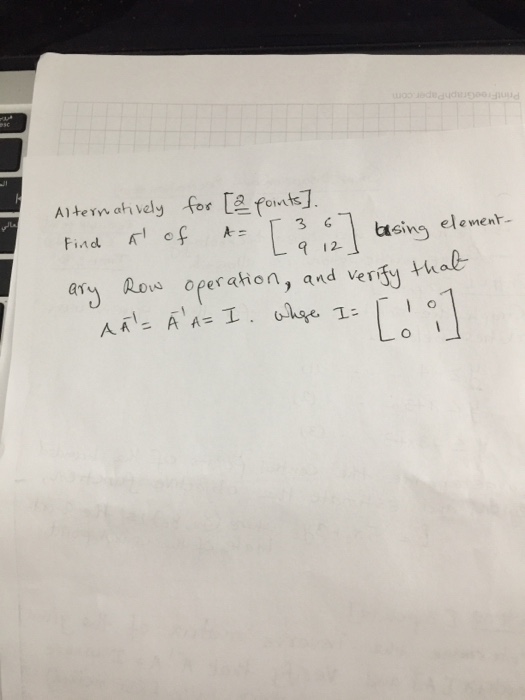 PrintFreeGraphPaper.com
Alternatively for [2 points].
Find A⁻¹ of A = [ 3 6 ; 9 12 ] using element-
ary Row operation, and verify that
A A⁻¹ = A⁻¹ A = I. whre I = [ 1 0 ; 0 1 ]